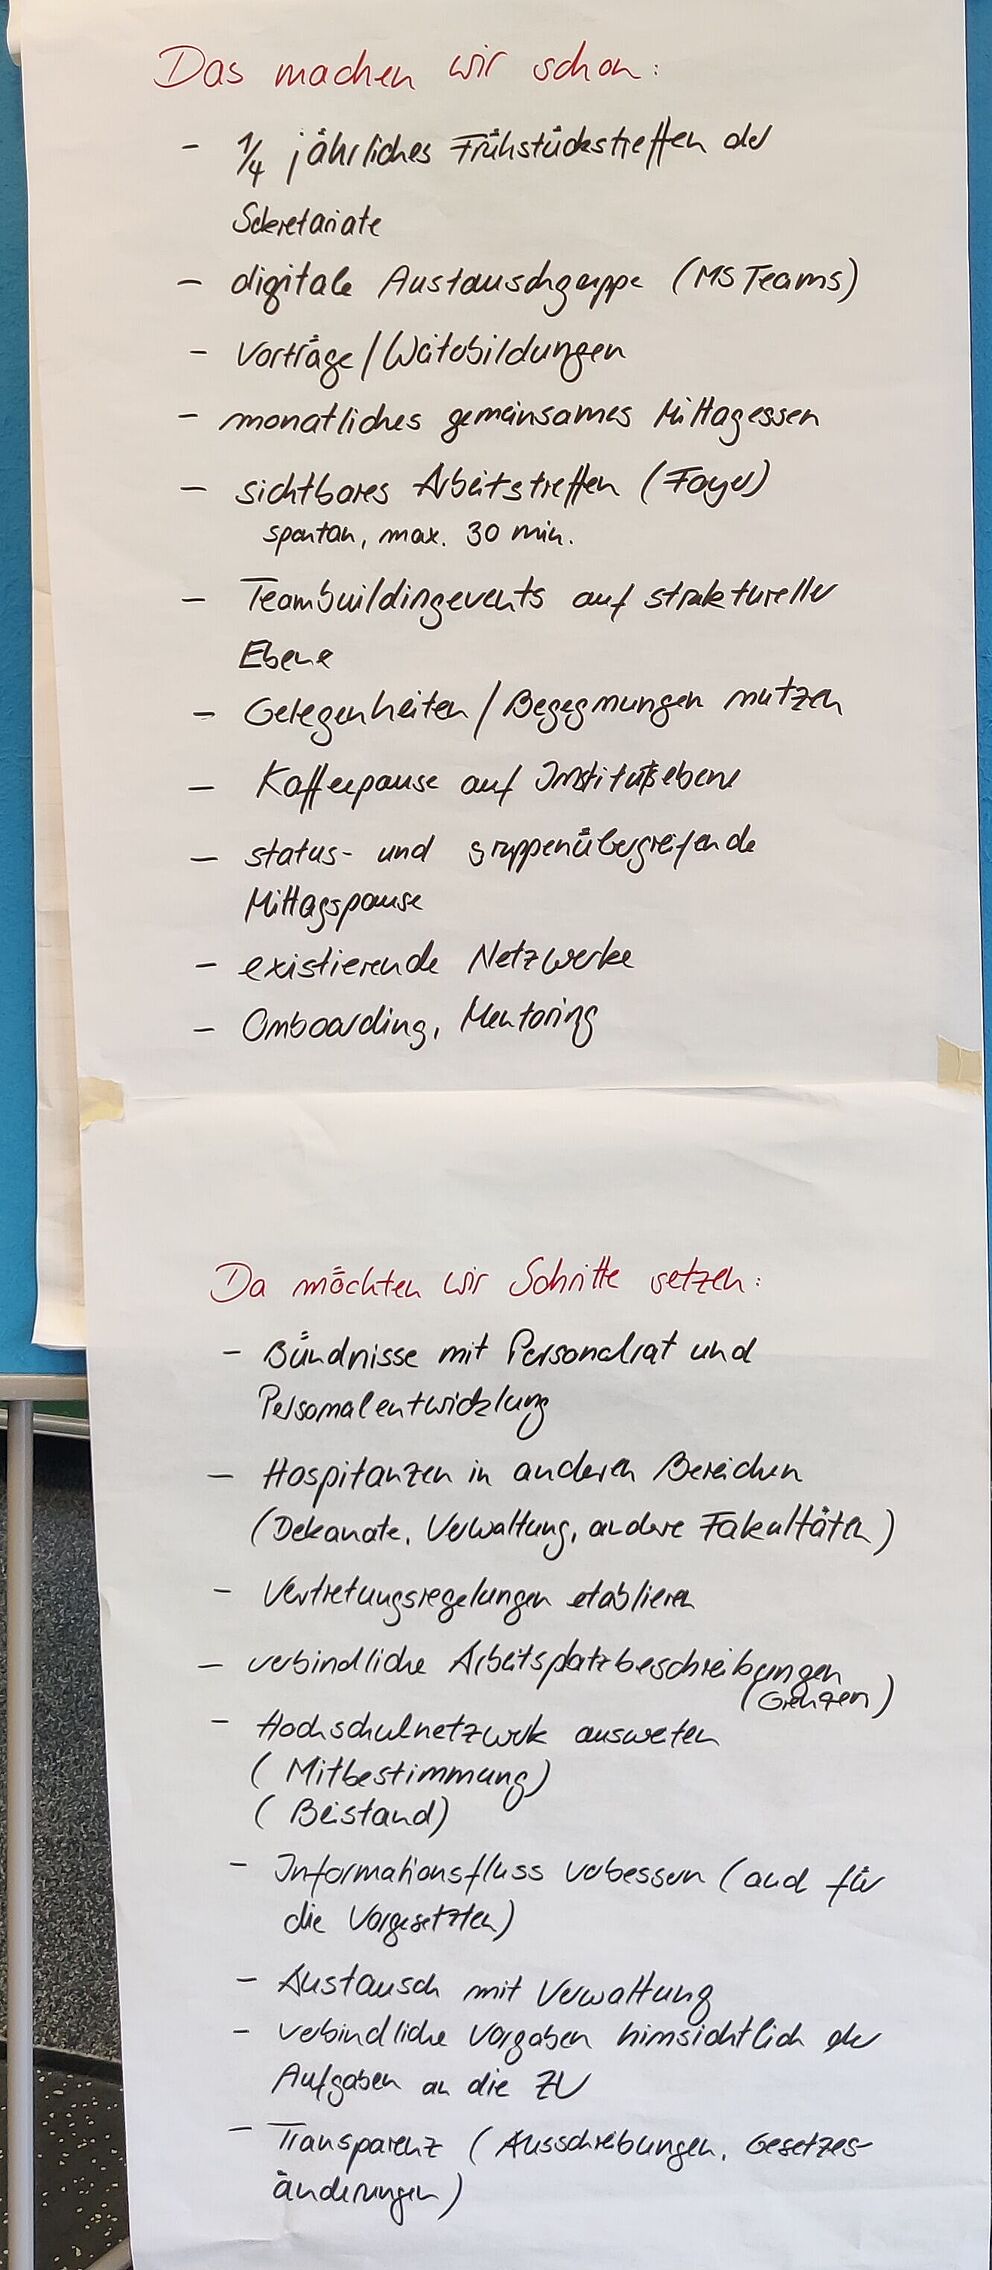 Das machen wir schon:
- 1/4 jährliches Frühstückstreffen der
Sekretariate
- digitale Austauschgruppe (MS Teams)
- Vorträge/Weiterbildungen
- monatliches gemeinsames Mittagessen
- sichtbares Arbeitstreffen (Foyer)
spontan, max. 30 min.
- Teambuildingevents auf struktureller
Ebene
- Gelegenheiten/Begegnungen nutzen
- Kaffeepause auf Institutsebene
- status- und gruppenübergreifende
Mittagspause
- existierende Netzwerke
- Onboarding, Mentoring
Da möchten wir Schritte setzen:
- Bündnisse mit Personalrat und
Personalentwicklung
- Hospitanzen in anderen Bereichen
(Dekanate, Verwaltung, andere Fakultäten)
- Vertretungsregelungen etablieren
- verbindliche Arbeitsplatzbeschreibungen
(Grenzen)
- Hochschulnetzwerk ausweiten
(Mitbestimmung)
(Beistand)
- Informationsfluss verbessern (auch für
die Vorgesetzten)
- Austausch mit Verwaltung
- verbindliche Vorgaben hinsichtlich der
Aufgaben an die ZV
- Transparenz (Ausschreibungen, Gesetzes-
änderungen)